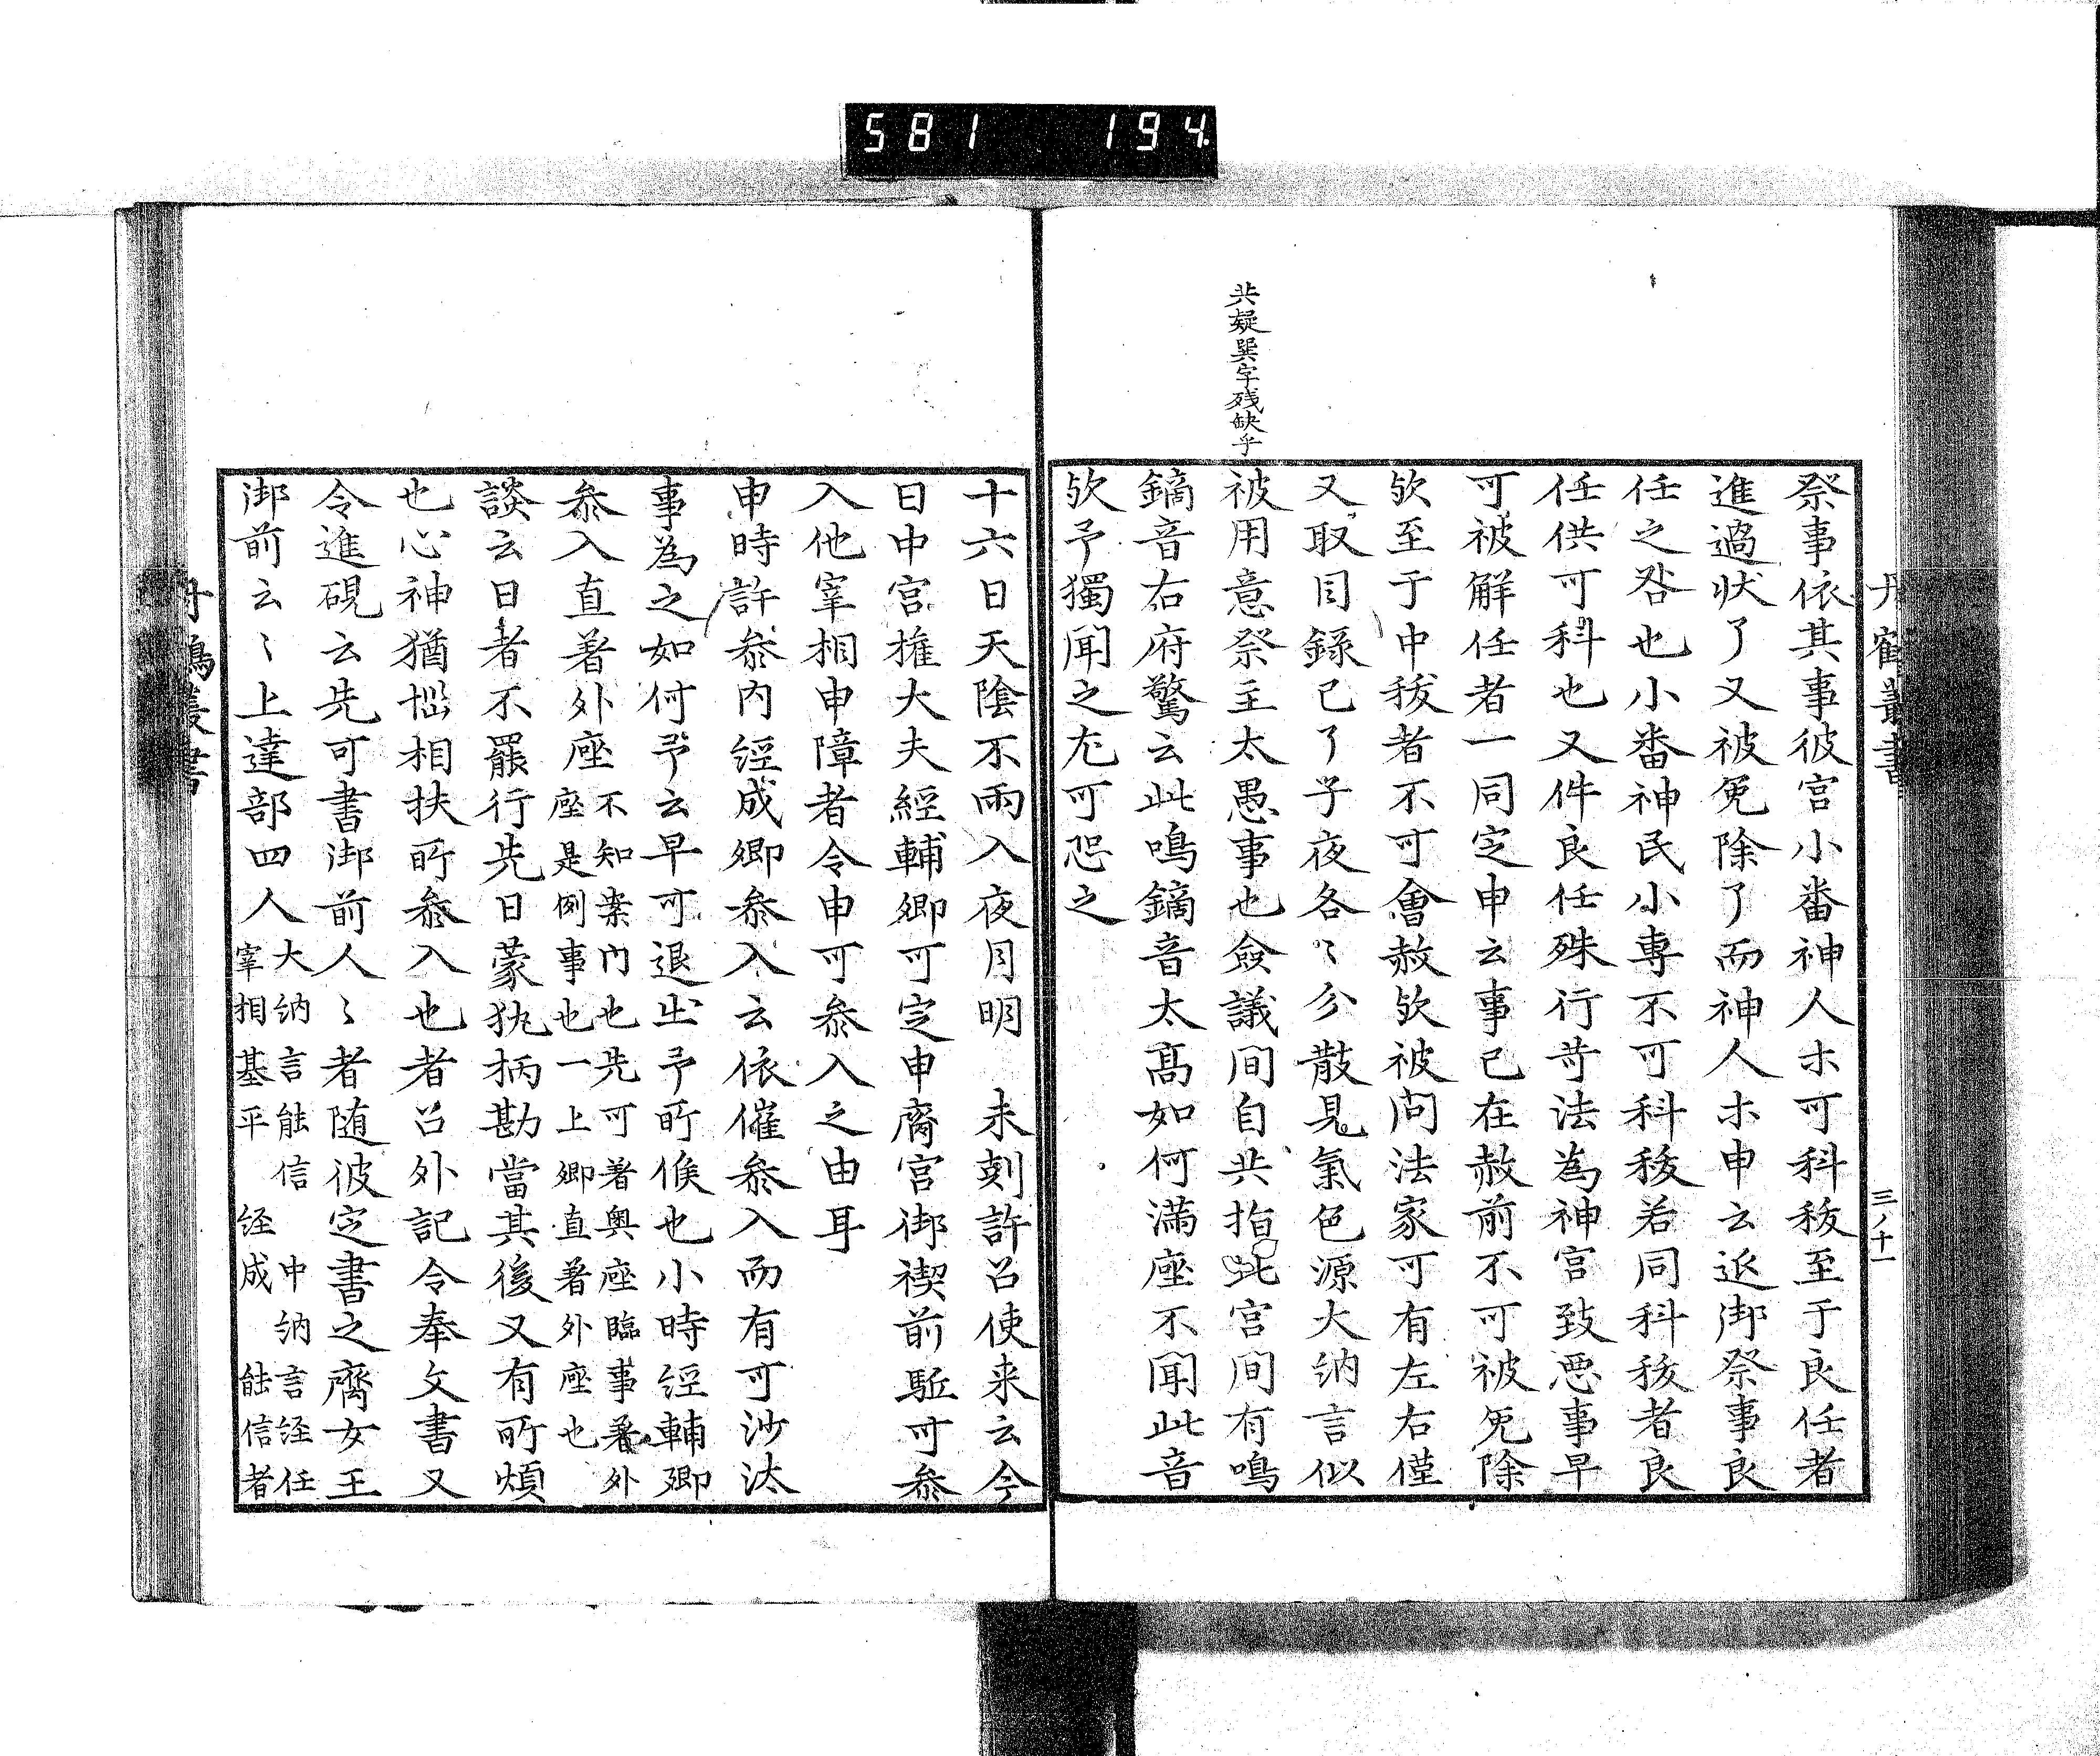 581 194
丹鶴叢書
三ノ十一
共疑巽字残缺乎
祭事依其事彼宮小畨神人ホ可科秡至于良任者
進過状了又被免除了而神人ホ申云近御祭事良
任之咎也小畨神民小専不可科秡若同科秡者良
任供可科也又件良任殊行苛法為神宮致悪事早
可被解任者一同定申云事已在赦前不可被免除
欤至于中秡者不可會赦欤被問法家可有左右僅
又取目録已了子夜各〻分散見氣色源大納言似
被用意祭主太愚事也僉議間自共指此宮間有鳴
鏑音右府驚云此鳴鏑音太髙如何満座不聞此音
欤予獨聞之尤可恐之
十六日天陰不雨入夜月明　未刻許召使来云今
日中宮権大夫經輔卿可定申齋宮御禊前駈可叅
入他宰相申障者令申可叅入之由耳
申時許叅内経成卿叅入云依催叅入而有可沙汰
事為之如何予云早可退出予所候也小時経輔卿
叅入直著外座
不知案内也先可著奥座臨事著外
座是例事也一上卿直著外座也
談云日者不罷行先日蒙執柄勘當其後又有所煩
也心神猶惱相扶所叅入也者召外記令奉文書又
令進硯云先可書御前人〻者随彼定書之齋女王
御前云〻上達部四人
大納言能信　中納言経任
宰相基平　経成　能信者
丹鶴叢書